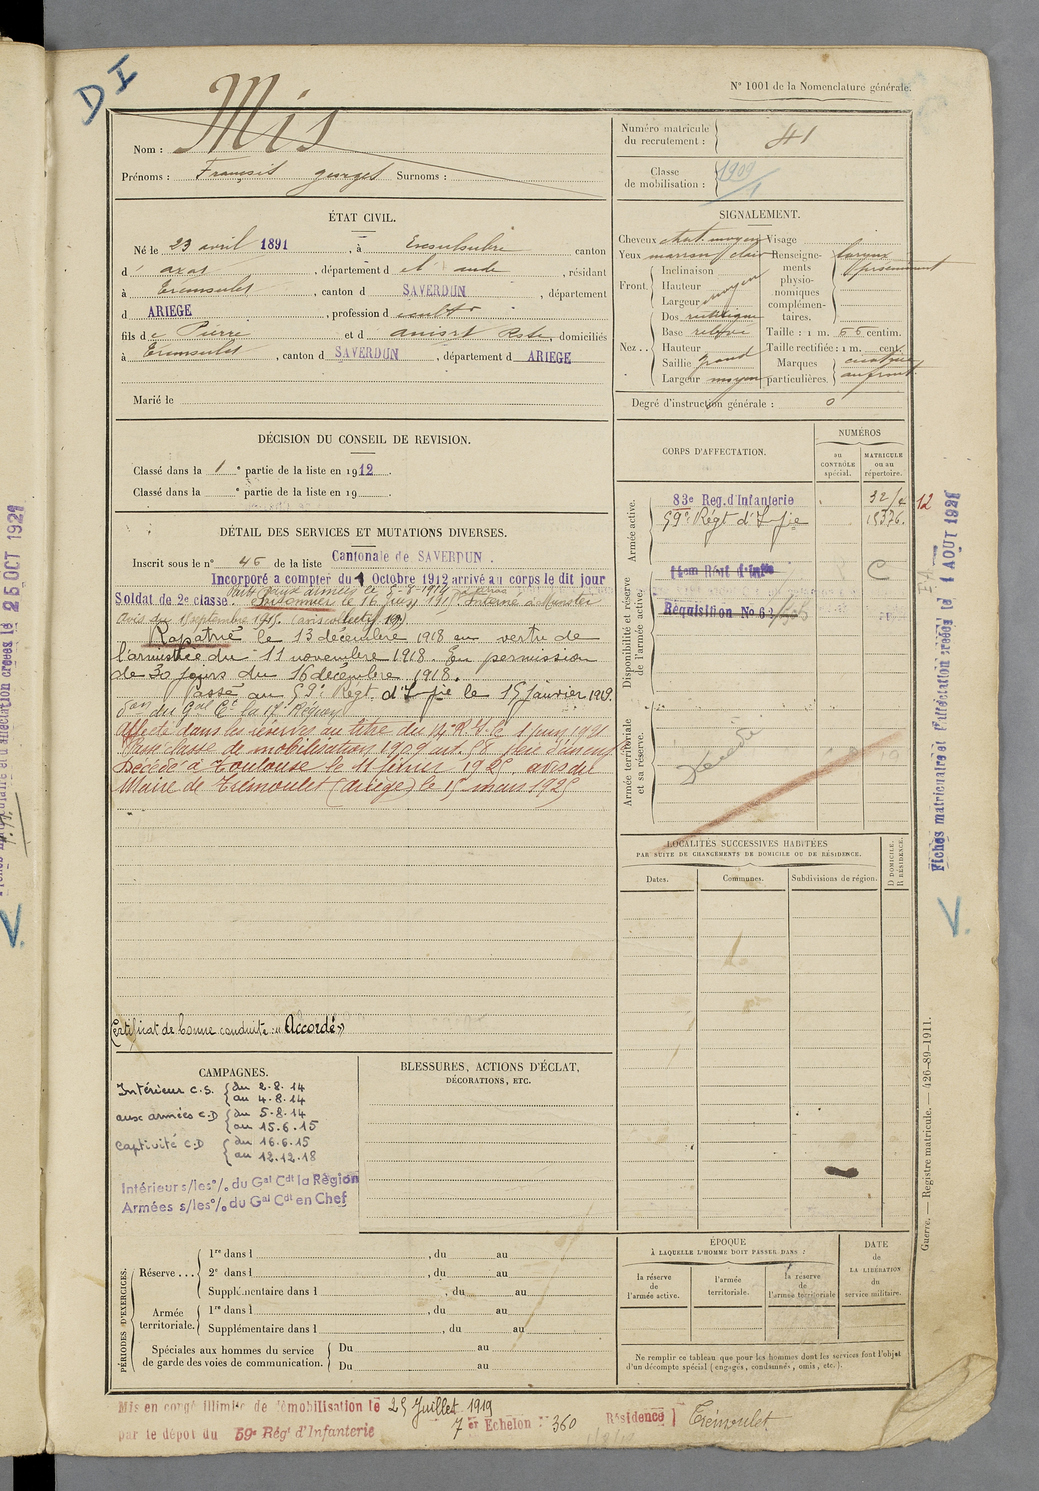 D I
Nº 1001 de la Nomenclature générale.
Mis
Nom :
Prénoms : François georges Surnoms :
Numéro matricule du recrutement : 41
Classe de mobilisation : 1909
ÉTAT CIVIL.
Né le 23 avril 1891, à canton
d' axat, département d e l'aude, résidant
à Trémoulet, canton d SAVERDUN, département
d ARIEGE, profession d cultr
fils de Pierre et d Rose, domiciliés
à Trémoulet, canton d SAVERDUN, département d ARIEGE
Marié le
SIGNALEMENT.
Cheveux chat. moyen Visage
Yeux marron clair Renseignements physionomiques complémentaires.
Front. Inclinaison
Hauteur
Largeur moyen
Nez . . Dos rectiligne
Base relevée Taille : 1 m. 66 centim.
Hauteur Taille rectifiée : 1 m. cent.
Saillie grand Marques particulières. cicatrice
Largeur moyen au front.
Degré d'instruction générale : 0
DÉCISION DU CONSEIL DE REVISION.
Classé dans la 1 e partie de la liste en 1912.
Classé dans la e partie de la liste en 19
CORPS D'AFFECTATION.
NUMÉROS
au CONTRÔLE spécial.
MATRICULE ou au répertoire.
Armée active.
83e Reg. d'Infanterie
59e Régt d'Ifie 15376.
12
Disponibilité et réserve de l'armée active.
14em Rént d'Infie C
Réquisition No 63
Armée territoriale et sa réserve.
Décédé
DÉTAIL DES SERVICES ET MUTATIONS DIVERSES.
Inscrit sous le nº 46 de la liste Cantonale de SAVERDUN.
Incorporé a compter du 1 Octobre 1912 arrivé au corps le dit jour
Soldat de 2e classe. Parti aux armées le 5-8-1914
Prisonnier le 16 juin 1915. Interné à Munster
Avis du 1 septembre 1915.
Rapatrié le 13 décembre 1918 en vertu de
l'armistice du 11 novembre 1918. En permission
de 30 jours du 16 décembre 1918.
Passé au 59e Régt d'Ifie le 15 Janvier 1919.
don du Gal Ct la 17e Région
Affecté dans les réserves au titre du 14e R.I. le 1 juin 1921
Passé classe de mobilisation 1909 art 58
Décédé à Toulouse le 11 février 1925. avis du
Maire de Trémoulet (Ariège) le 15 mars 1925
Certificat de bonne conduite : « Accordé »
LOCALITÉS SUCCESSIVES HABITÉES
PAR SUITE DE CHANGEMENTS DE DOMICILE OU DE RÉSIDENCE.
Dates. Communes. Subdivisions de région. D DOMICILE. R RÉSIDENCE.
CAMPAGNES.
Intérieur C.S. du 2.8.14
au 4.8.14
aux armées C.D du 5.8.14
au 15.6.15
Captivité C.D du 16.6.15
au 12.12.18
Intérieur s/les º/o du Gal Cdt la Région
Armées s/les º/o du Gal Cdt en Chef
BLESSURES, ACTIONS D'ÉCLAT,
DÉCORATIONS, ETC.
PÉRIODES D'EXERCICES.
Réserve . . . 1re dans l , du au
2e dans l , du au
Supplémentaire dans l , du au
Armée territoriale. 1re dans l , du au
Supplémentaire dans l , du au
Spéciales aux hommes du service de garde des voies de communication. Du au
Du au
ÉPOQUE
À LAQUELLE L'HOMME DOIT PASSER DANS :
la réserve de l'armée active.
l'armée territoriale.
la réserve de l'armée territoriale
DATE de LA LIBÉRATION du service militaire.
Ne remplir ce tableau que pour les hommes dont les services font l'objet
d'un décompte spécial (engagés, condamnés, omis, etc.).
Mis en congé illimité de démobilisation le 25 Juillet 1919
7er Echelon Nº 360 Résidence Trémoulet
par le dépot du 59e Régt d'Infanterie
Guerre. — Registre matricule. — 426-89-1911.
Fiches matriculaire et d'affectation créées le 1 AOUT 1921
V.
Fiches matriculaire et d'affectation créées le 25 OCT 1921
V.